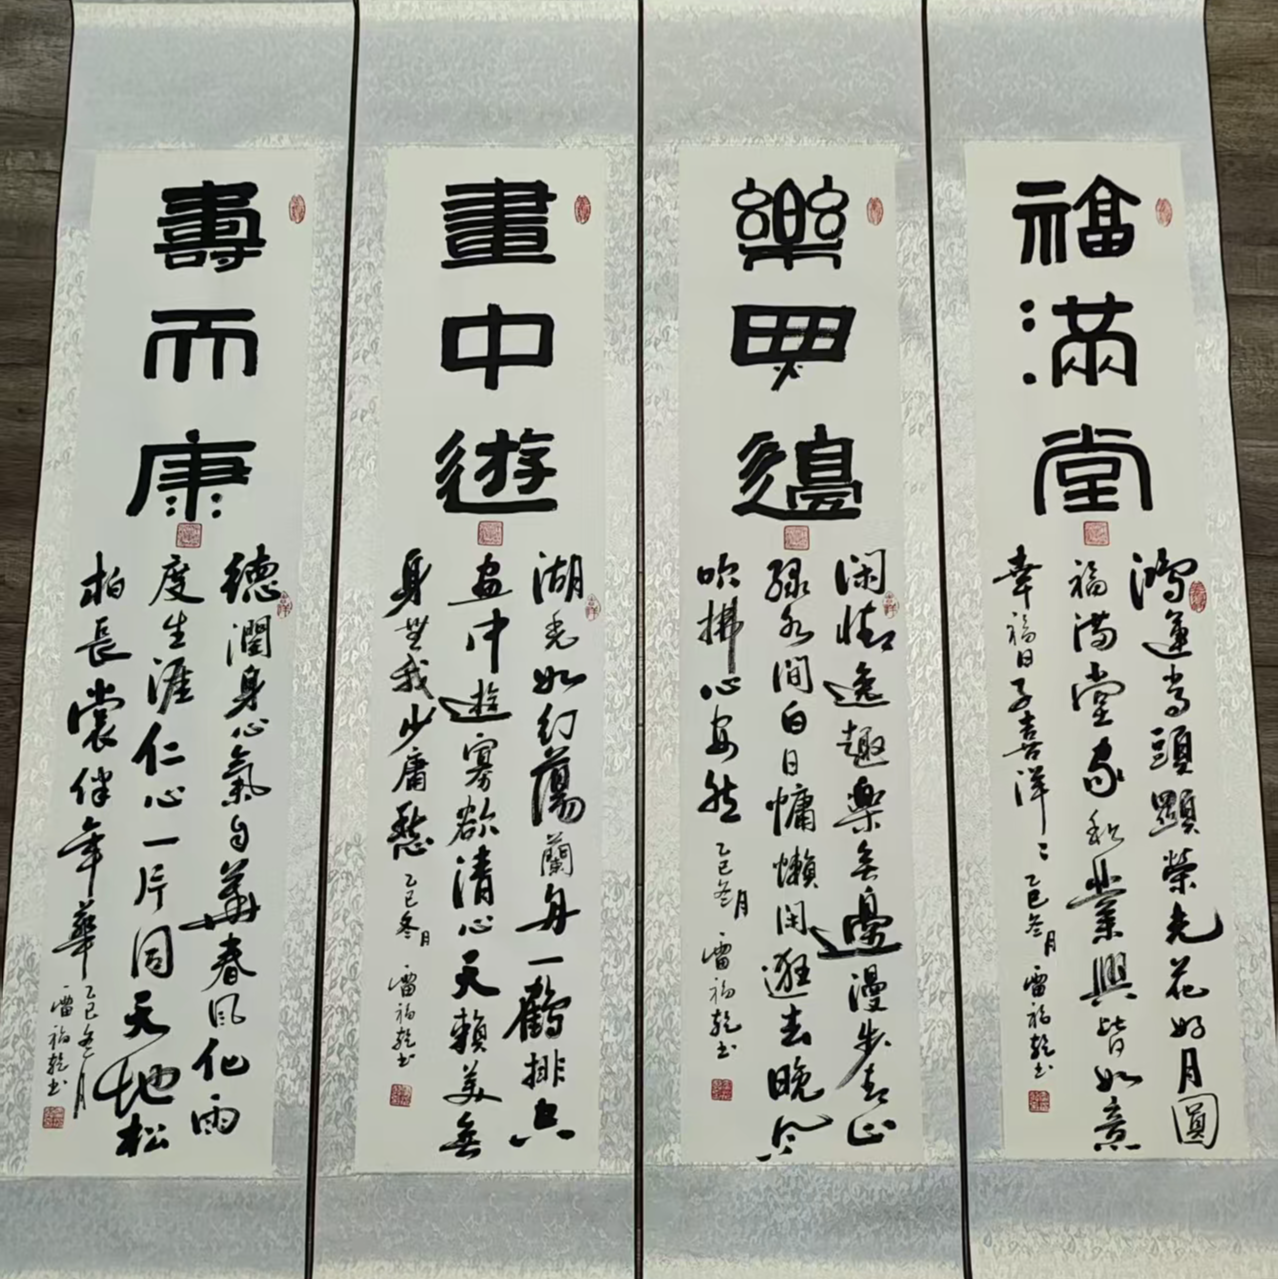 福滿堂
鴻運當頭顯榮光花好月圓
福满堂家和業興皆如意
幸福日子喜洋〻乙巳冬月雷福乾书
樂無邊
闲情逸趣樂無邊漫步青山
绿水间白日慵懒闲逛去晚风
吹拂心安然
乙巳冬月雷福乾书
畫中遊
湖光如幻蕩蘭舟一鶴排空
画中遊寡欲清心天籟美無
身無我少庸愁
乙巳冬月雷福乾书
壽而康
德潤身心氣自華春風化雨
度生涯仁心一片同天地松
柏長裳伴年華乙巳冬月
雷福乾书